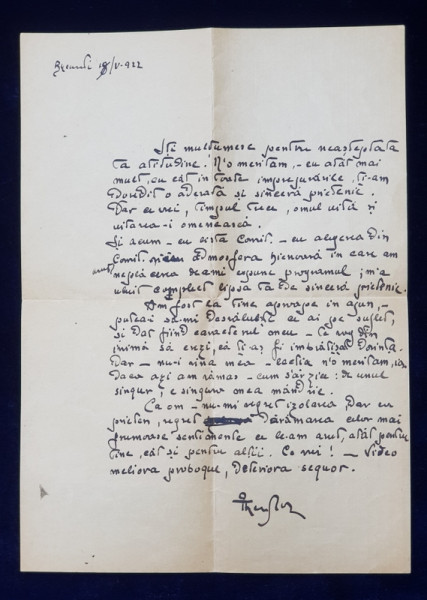 18/V-922
Îți multumesc pentru neasteptata
ta atitudine. N'o meritam, - cu atât mai
mult, cu cât în toate imprejurările, ti-am
dovedit o adevarată și sinceră prietenie.
Dar ce vrei, timpul trece, omul uită și
uitarea-i omenească.
Și acum - cu vista Comit. - cu alegerea din
Comit. admosfera in care am
programul, m'a
complect lipsa ta de sinceră prietenie.
Am fost la tine aproape in ajun, -
puteai să-mi ce ai pe suflet,
și dat fiind caracterul meu - te rog din
inimă să crezi, că ti-aș fi îmbrățișat dorința.
Dar - nu-i vina mea - n'o meritam, iar
daca azi am rămas - cum s'ar zice: de unul
singur; e singura mea mândrie.
Ca om - nu-mi regret izolarea. Dar ca
prieten, regret dărâmarea celor mai
frumoase sentimente ce le-am avut, atât pentru
tine, cât și pentru alții. Ce vrei! - Video
meliora proboque, deteriora sequor.